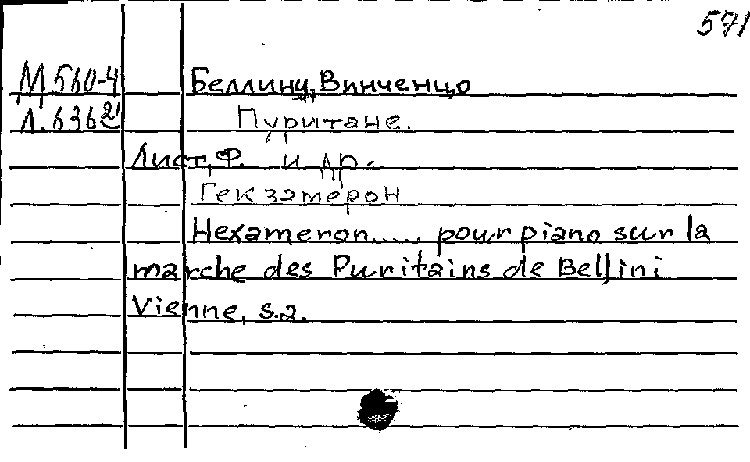 571
М 560-4 Беллини, Винченцо
Л. 636 Пуритане.
Лист, Ф. и др.
Гекзамерон
Hexameron..... pour piano sur la
marche des Puritains de Bellini
Vienne, s.a.